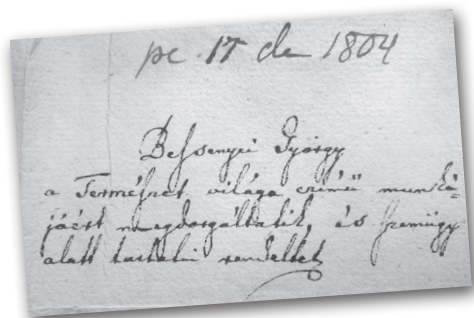 pc 17 de 1804
Bessenyei György
a Természet világa czimű munká-
jáért megdorgáltatik, és szemügy
alatt tartatni rendeltet